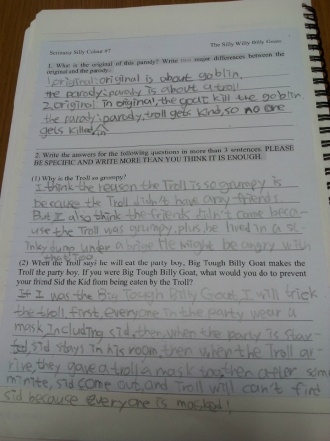 Seriously Silly Colour #7
The Silly Willy Billy Goats
1. What is the original of this parody? Write two major differences between the
original and the parody.
1. original: original is about goblin.
the parody: parody is about a troll
2. original: In original, the goat kill the goblin
the parody: parody, troll gets kind, so no one
gets killed
2. Write the answers for the following questions in more than 3 sentences. PLEASE
BE SPECIFIC AND WRITE MORE TEAN YOU THINK IT IS ENOUGH.
(1) Why is the Troll so grumpy?
I think the reason the Troll is so grumpy is
because the Troll didn't have any friends.
But I also think the friends didn't come beca-
use the Troll was grumpy, plus he lived in a st-
inky dung under a bridge. He might be angry with
that too.
(2) When the Troll says he will eat the party boy, Big Tough Billy Goat makes the
Troll the party boy. If you were Big Tough Billy Goat, what would you do to prevent
your friend Sid the Kid from being eaten by the Troll?
If I was the Big Tough Billy Goat, I will trick
the troll, first, everyone in the party wear a
mask including sid, then, when the party is star-
ted, sid stays in his room, then when the Troll ar-
rive, they gave a troll a mask too, then after some
minite, sid come out, and Troll will can't find
sid because everyone is masked!